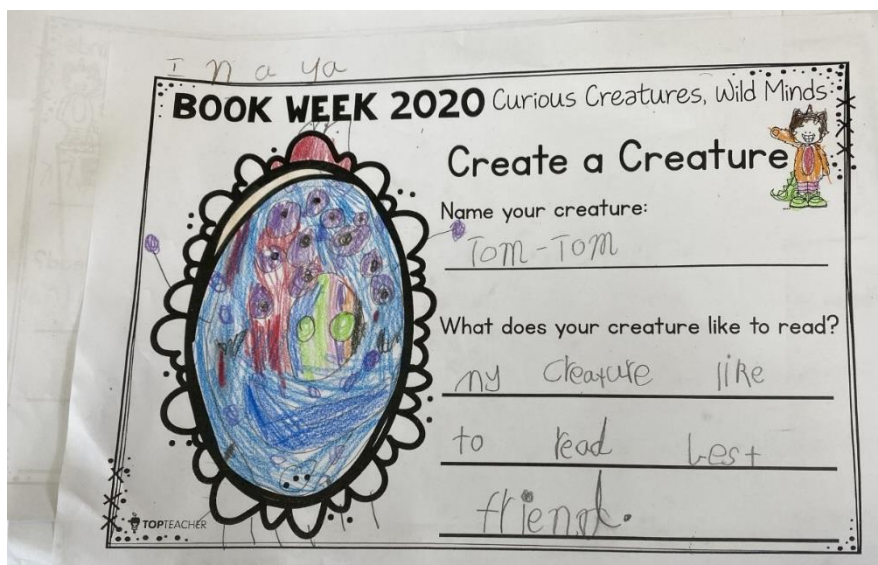 Inaya
BOOK WEEK 2020 Curious Creatures, Wild Minds
Create a Creature
Name your creature:
Tom-Tom
What does your creature like to read?
my creature like
to read best
friend.
TOPTEACHER